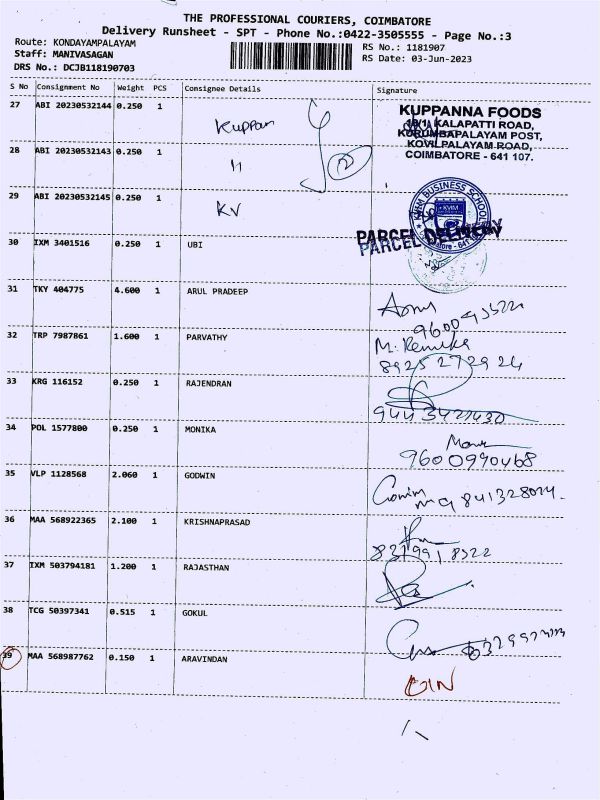 THE PROFESSIONAL COURIERS, COIMBATORE
Delivery Runsheet - SPT - Phone No.:0422-3505555 - Page No.:3
Route: KONDAYAMPALAYAM
RS No.: 1181907
Staff: MANIVASAGAN
RS Date: 03-Jun-2023
DRS No.: DCJB118190703
S No Consignment No Weight PCS Consignee Details Signature
27 ABI 20230532144 0.250 1
Kuppan
KUPPANNA FOODS
KALAPATTI ROAD,
KURUMBAPALAYAM POST,
KOVILPALAYAM ROAD,
COIMBATORE - 641 107.
28 ABI 20230532143 0.250 1
11
29 ABI 20230532145 0.250 1
KV
KVIM BUSINESS SCHOOL
30 IXM 3401516 0.250 1 UBI
PARCEL DELIVERY
PARCEL DELIVERY
31 TKY 404775 4.600 1 ARUL PRADEEP
32 TRP 7987861 1.600 1 PARVATHY
M. Renuka
8925272924
33 KRG 116152 0.250 1 RAJENDRAN
34 POL 1577800 0.250 1 MONIKA
9600990468
35 VLP 1128568 2.060 1 GODWIN
36 MAA 568922365 2.100 1 KRISHNAPRASAD
37 IXM 503794181 1.200 1 RAJASTHAN
38 TCG 50397341 0.515 1 GOKUL
39 MAA 568987762 0.150 1 ARAVINDAN